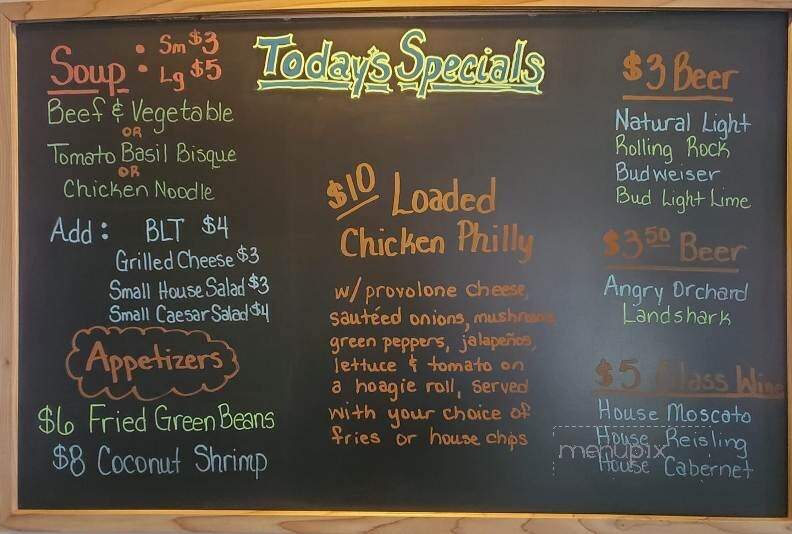 Today's Specials
Soup: Sm $3
Lg $5
Beef & Vegetable
OR
Tomato Basil Bisque
OR
Chicken Noodle
Add: BLT $4
Grilled Cheese $3
Small House Salad $3
Small Caesar Salad $4
Appetizers
$6 Fried Green Beans
$8 Coconut Shrimp
$10 Loaded
Chicken Philly
w/ provolone cheese,
sautéed onions, mushrooms,
green peppers, jalapeños,
lettuce & tomato on
a hoagie roll, served
with your choice of
fries or house chips
$3 Beer
Natural Light
Rolling Rock
Budweiser
Bud Light Lime
$3.50 Beer
Angry Orchard
Landshark
$5 Glass Wine
House Moscato
House Reisling
House Cabernet
menupix